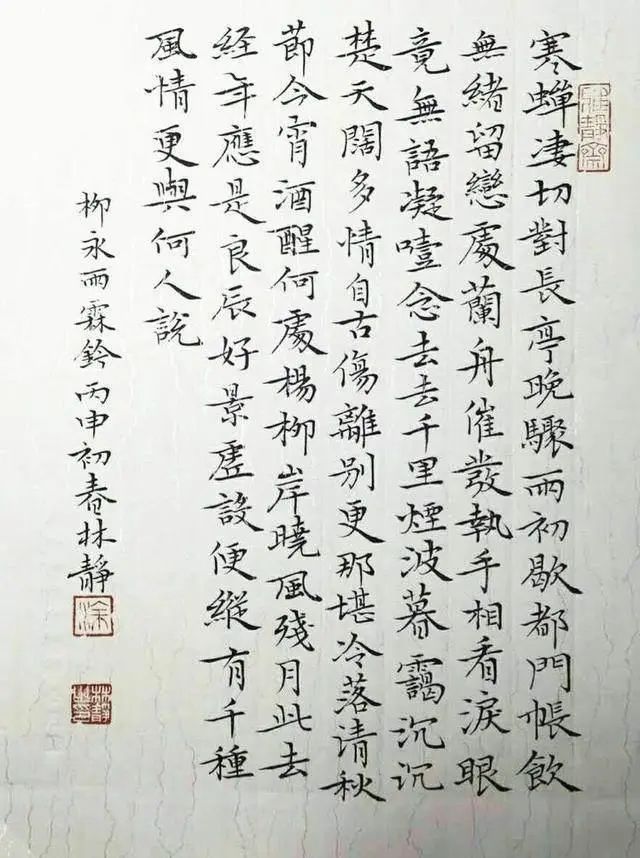 寒蟬淒切對長亭晚驟雨初歇都門帳飲
無緒留戀處蘭舟催發執手相看淚眼
竟無語凝噎念去去千里煙波暮靄沉沉
楚天闊多情自古傷離別更那堪冷落清秋
節今宵酒醒何處楊柳岸曉風殘月此去
経年應是良辰好景虛設便縱有千種
風情更與何人說
柳永雨霖鈴丙申初春林靜